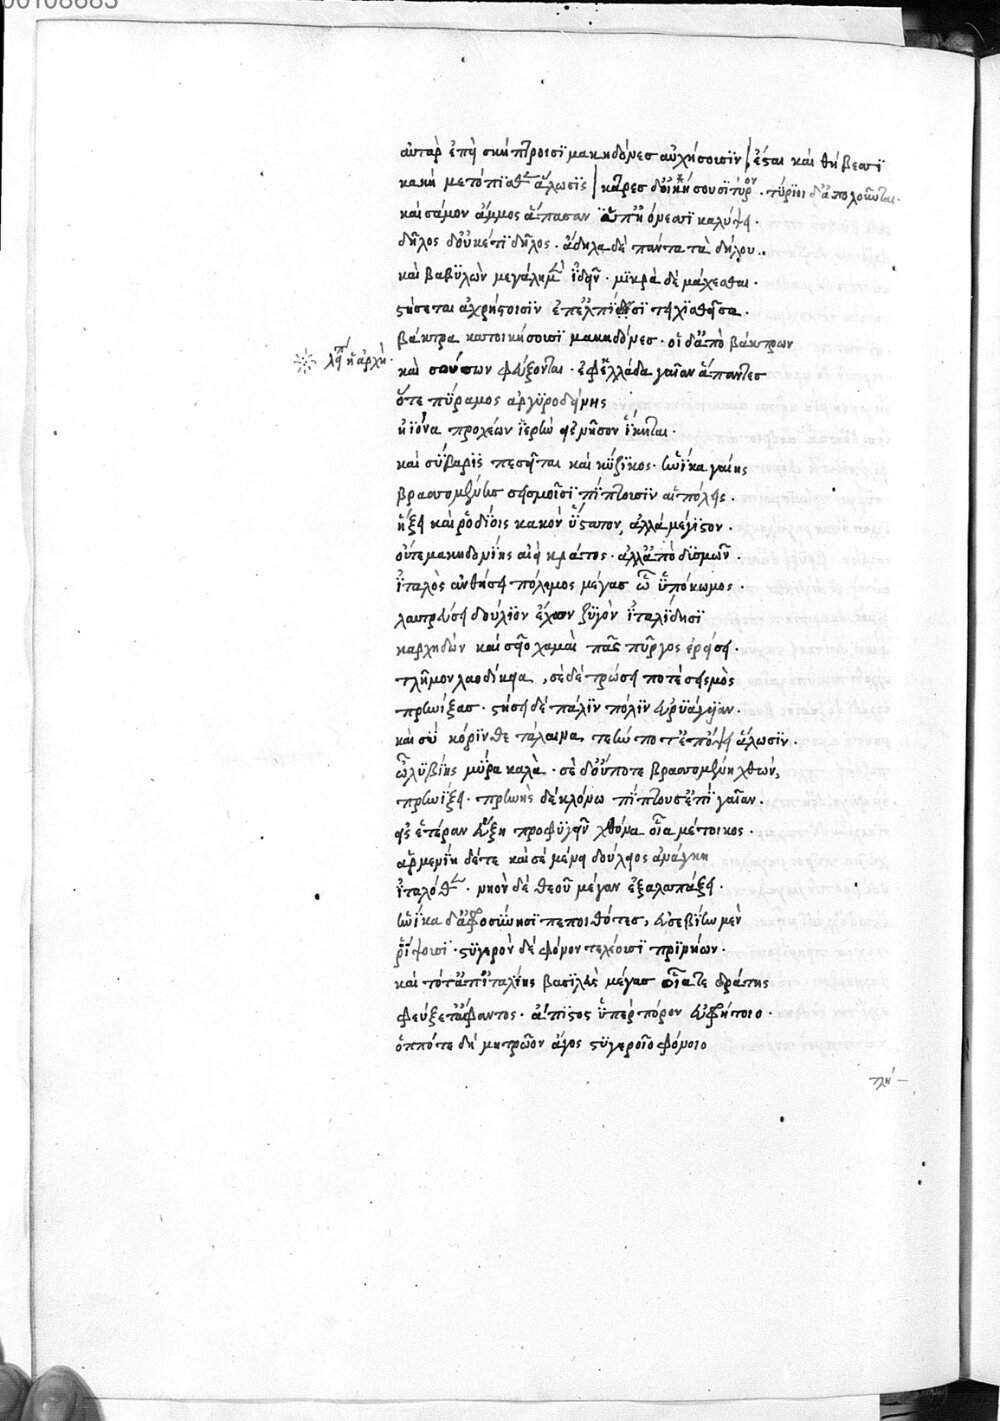 00108683
αὐτὰρ ἐπὶ σκήπτροισι μακηδόνες αὐχήσουσιν / ἔσται καὶ θήβεσι
κακὴ μετόπισθεν ἅλωσις / κᾶρες δ' οἰκήσουσι τύρον. τύριοι δ' ἀπολοῦνται.
καὶ σάμον ἄμμος ἅπασαν ὑπ' ἠϊόνεσσι καλύψει.
δῆλος δ' οὐκέτι δῆλος. ἄδηλα δὲ πάντα τὰ δήλου..
καὶ βαβυλὼν μεγάλη μὲν ἰδεῖν. μικρὰ δὲ μάχεσθαι.
στήσεται ἀχρήστοισιν ἐπ' ἐλπίσι τειχισθεῖσα.
βάκτρα κατοικήσουσι μακηδόνες. οἱ δ' ἀπὸ βάκτρων
λείπει ἡ ἀρχὴ.
καὶ σούσων φεύξονται. ἐφ' ἑλλάδα γαῖαν ἅπαντες
ὅτε πύραμος ἀργυροδίνης
ἠϊόνα προχέων ἱερὴν ἐς νῆσον ἵκηται.
καὶ σύβαρις πεσεῖται καὶ κύζικος. ἡνίκα γαίης
βρασσομένης σεισμοῖσι πίπτουσιν αἱ πόλεις.
ἥξει καὶ ῥοδίοις κακὸν ὕστατον, ἀλλὰ μέγιστον.
οὔτε μακηδονίης αἰεὶ κράτος. ἀλλ' ἀπὸ δυσμῶν.
ἰταλὸς ἀνθήσει πόλεμος μέγας ᾧ ὕπο κόσμος.
λατρεύσει δούλιον ἔχων ζυγὸν ἰταλίδῃσι
καρχηδών καὶ σεῖο χαμαὶ πᾶς πύργος ἐρείσει.
τλῆμον λαοδίκεια, σὲ δὲ τρώσει ποτὲ σεισμὸς
πρηνίξας. στήσει δὲ πάλιν πόλιν εὐρυάγυιαν.
καὶ σὺ κόρινθε τάλαινα τεήν ποτ' ἐπόψει ἅλωσιν.
ὦ λυκίης μύρα καλὰ. σὲ δ' οὔποτε βρασσομένη χθών,
πρηνίξει. πρηνὴς δὲ κάτω πίπτουσ' ἐπὶ γαῖαν.
εἰς ἑτέραν εὔξῃ προφυγεῖν χθόνα οἷα μέτοικος.
ἀρμενίη δέ τε καὶ σὲ μένει δούλειος ἀνάγκη
ἰταλόθεν. νηὸν δὲ θεοῦ μέγαν ἐξαλαπάξει.
ἡνίκα δ' ἀφροσύνῃσι πεποιθότες, εὐσεβίην μὲν
ῥίψουσι. στυγερὸν δὲ φόνον τελέουσι πρὶ νηῶν.
καὶ τότ' ἀπ' ἰταλίης βασιλεὺς μέγας οἷά τε δράπης
φεύξετ' ἄφαντος. ἄπιστος ὑπὲρ πόρον εὐφρήταο.
ὁππότε δὴ μητρῷον ἄγος στυγεροῖο φόνοιο
τλή